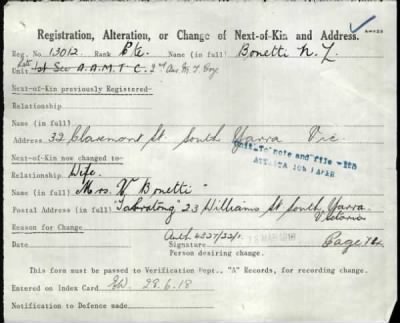 Registration, Alteration, or Change of Next-of-Kin and Address.
Reg. No. 13012 Rank Pte. Name (in full) Bonetti N. L.
Late
Unit 1st Sec A.A.M.T.C. 2nd Aus. M. T. Coy
Next-of-Kin previously Registered-
Relationship
Name (in full)
Address 32 Claremont St South Yarra Vic
Next-of-Kin now changed to-
Unit to note and file with
Relationship Wife.
Name (in full) Mrs. V. Bonetti
Postal Address (in full) "Tabratong" 23 Williams St South Yarra
Victoria
Reason for Change
Auth 4257/22/
Date Signature Page 72
Person desiring change.
This form must be passed to Verification Dept., "A" Records, for recording change.
Entered on Index Card 28.6.18
Notification to Defence made